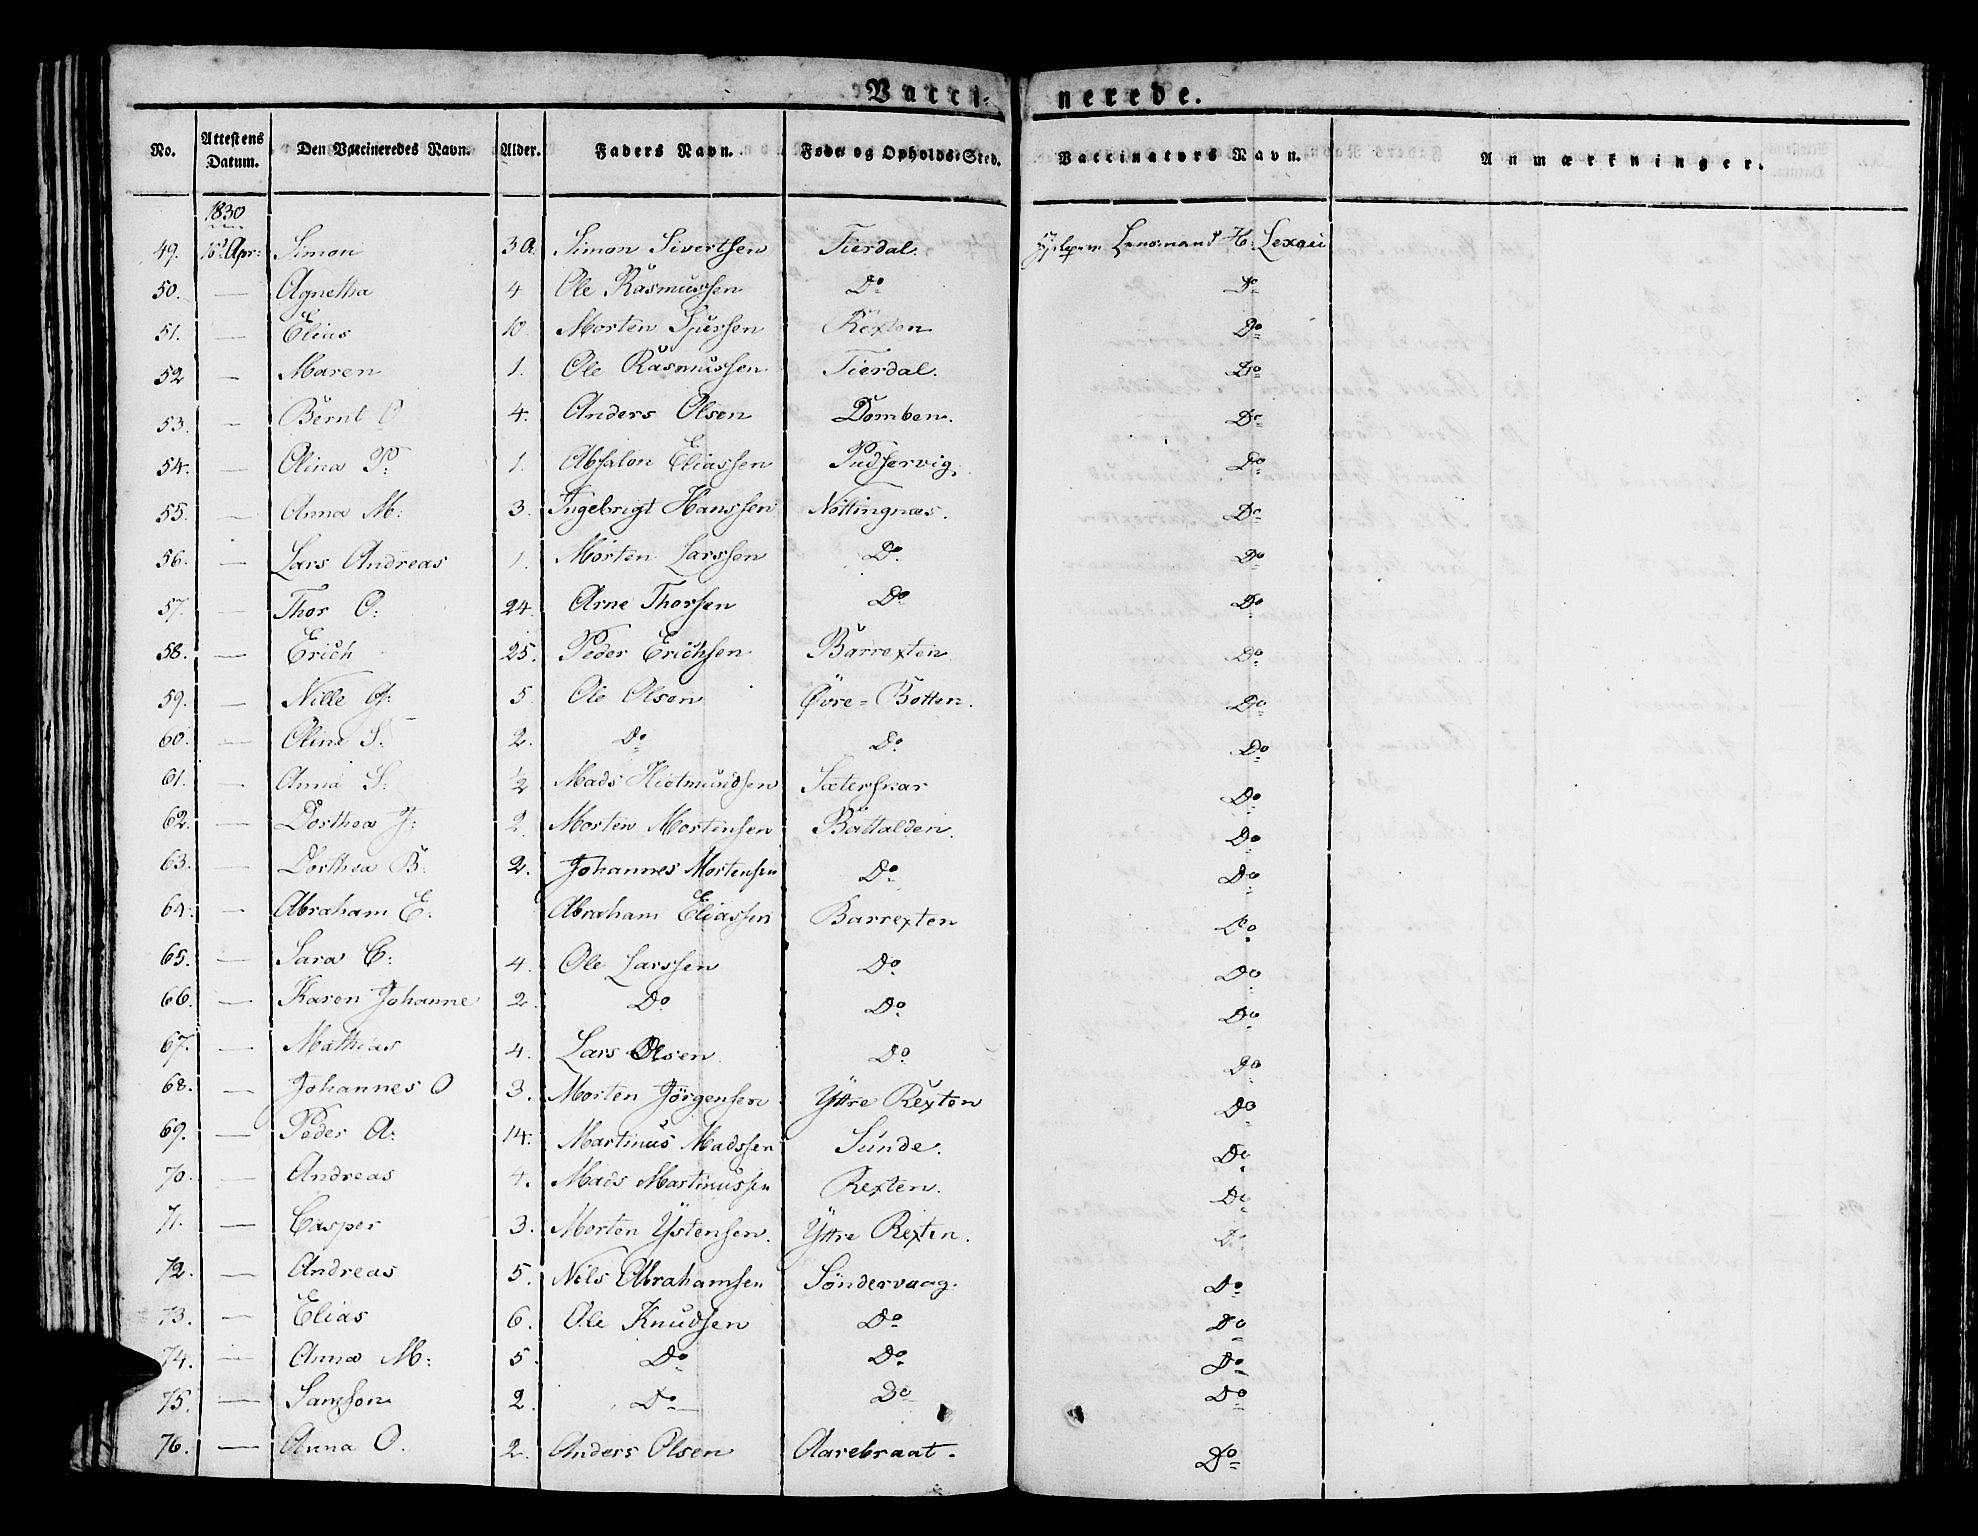 Vacci-nerede.
No. Attestens Datum. Den Vaccineredes Navn. Alder. Faders Navn. Føde- og Opholds-Sted. Vaccinators Navn. Anmærkninger.
1830
49. 15 Apr: Simon 3 A. Simon Sivertsen Tierdal. Lensmand H: Lexau
50. — Agnetha 4 Ole Rasmussen Do Do
51. — Elias 10 Morten Sjurssen Rexten Do
52 — Maren 1. Ole Rasmussen Tierdal. Do
53. — Bernt O 4. Anders Olsen Domben. Do
54. — Olina P. 1. Absalon Eliassen Pudservig. Do
55. — Anna M: 3. Ingebrigt Hanssen Nottingnæs. Do
56. — Lars Andreas 1. Morten Larssen Do Do
57. — Thor O: 24. Arne Thorsen Do Do
58. — Erich 25. Peder Erichsen Barrexten Do
59. — Nille G: 5 Ole Olsen Øvre-Botten. Do
60. — Oline S. 2. Do Do Do
61. — Anna S. ½ Mads Hiotmundsen Sæterskar Do
62. — Dorthea J: 2. Morten Mortensen Battalden. Do
63. — Dorthea B: 2. Johannes Mortensen Do Do
64. — Abraham E: Abraham Eliassen Barrexten Do
65. — Sara C: 4. Ole Larssen Do Do
66. — Karen Johanne 2. Do Do Do
67. — Mathias 4. Lars Olsen Do Do
68. — Johannes O 3. Morten Jörgensen Yttre Rexten Do
69. — Peder A: 14. Martinus Madssen Sunde. Do
70. — Andreas 4. Mads Martinussen Rexten. Do
71. — Casper 3. Morten Ystensen. Yttre Rexten. Do
72. — Andreas 5. Nils Abrahamsen Söndervaag. Do
73. — Elias 6. Ole Knudsen Do Do
74. — Anna M: 5. Do Do Do
75. — Samson 2. Do Do Do
76. — Anna O. 2. Anders Olsen Aarebraat. Do